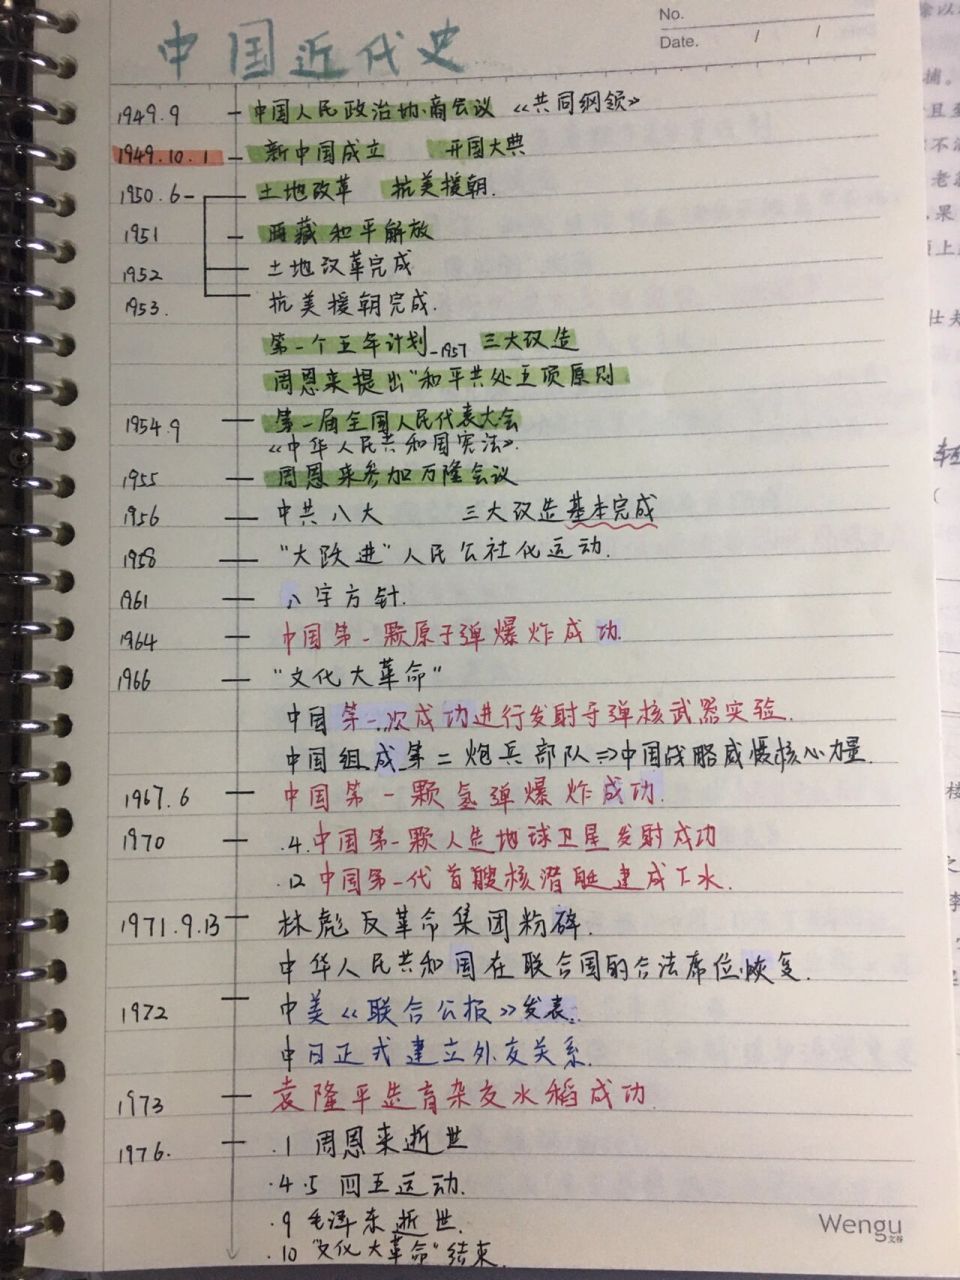 No.
Date. / /
中国近代史
1949.9 中国人民政治协商会议 《共同纲领》
1949.10.1 新中国成立 开国大典
1950.6 土地改革 抗美援朝.
1951 西藏和平解放
1952 土地改革完成
1953. 抗美援朝完成.
第一个五年计划-1957 三大改造
周恩来提出"和平共处五项原则
1954.9 第一届全国人民代表大会
《中华人民共和国宪法》.
1955 周恩来参加万隆会议
1956 中共八大 三大改造基本完成
1958 "大跃进"人民公社化运动.
1961 八字方针.
1964 中国第一颗原子弹爆炸成功.
1966 "文化大革命"
中国第一次成功进行发射导弹核武器实验.
中国组成第二炮兵部队⇒中国战略威慑核心力量.
1967.6 中国第一颗氢弹爆炸成功.
1970 .4.中国第一颗人造地球卫星发射成功
.12 中国第一代首艘核潜艇建成下水.
1971.9.13 林彪反革命集团粉碎.
中华人民共和国在联合国的合法席位恢复.
1972 中美《联合公报》发表.
中日正式建立外交关系.
1973 袁隆平选育杂交水稻成功.
1976. .1 周恩来逝世
.4.5 四五运动.
.9 毛泽东逝世.
.10 "文化大革命"结束.
Wengu
文谷